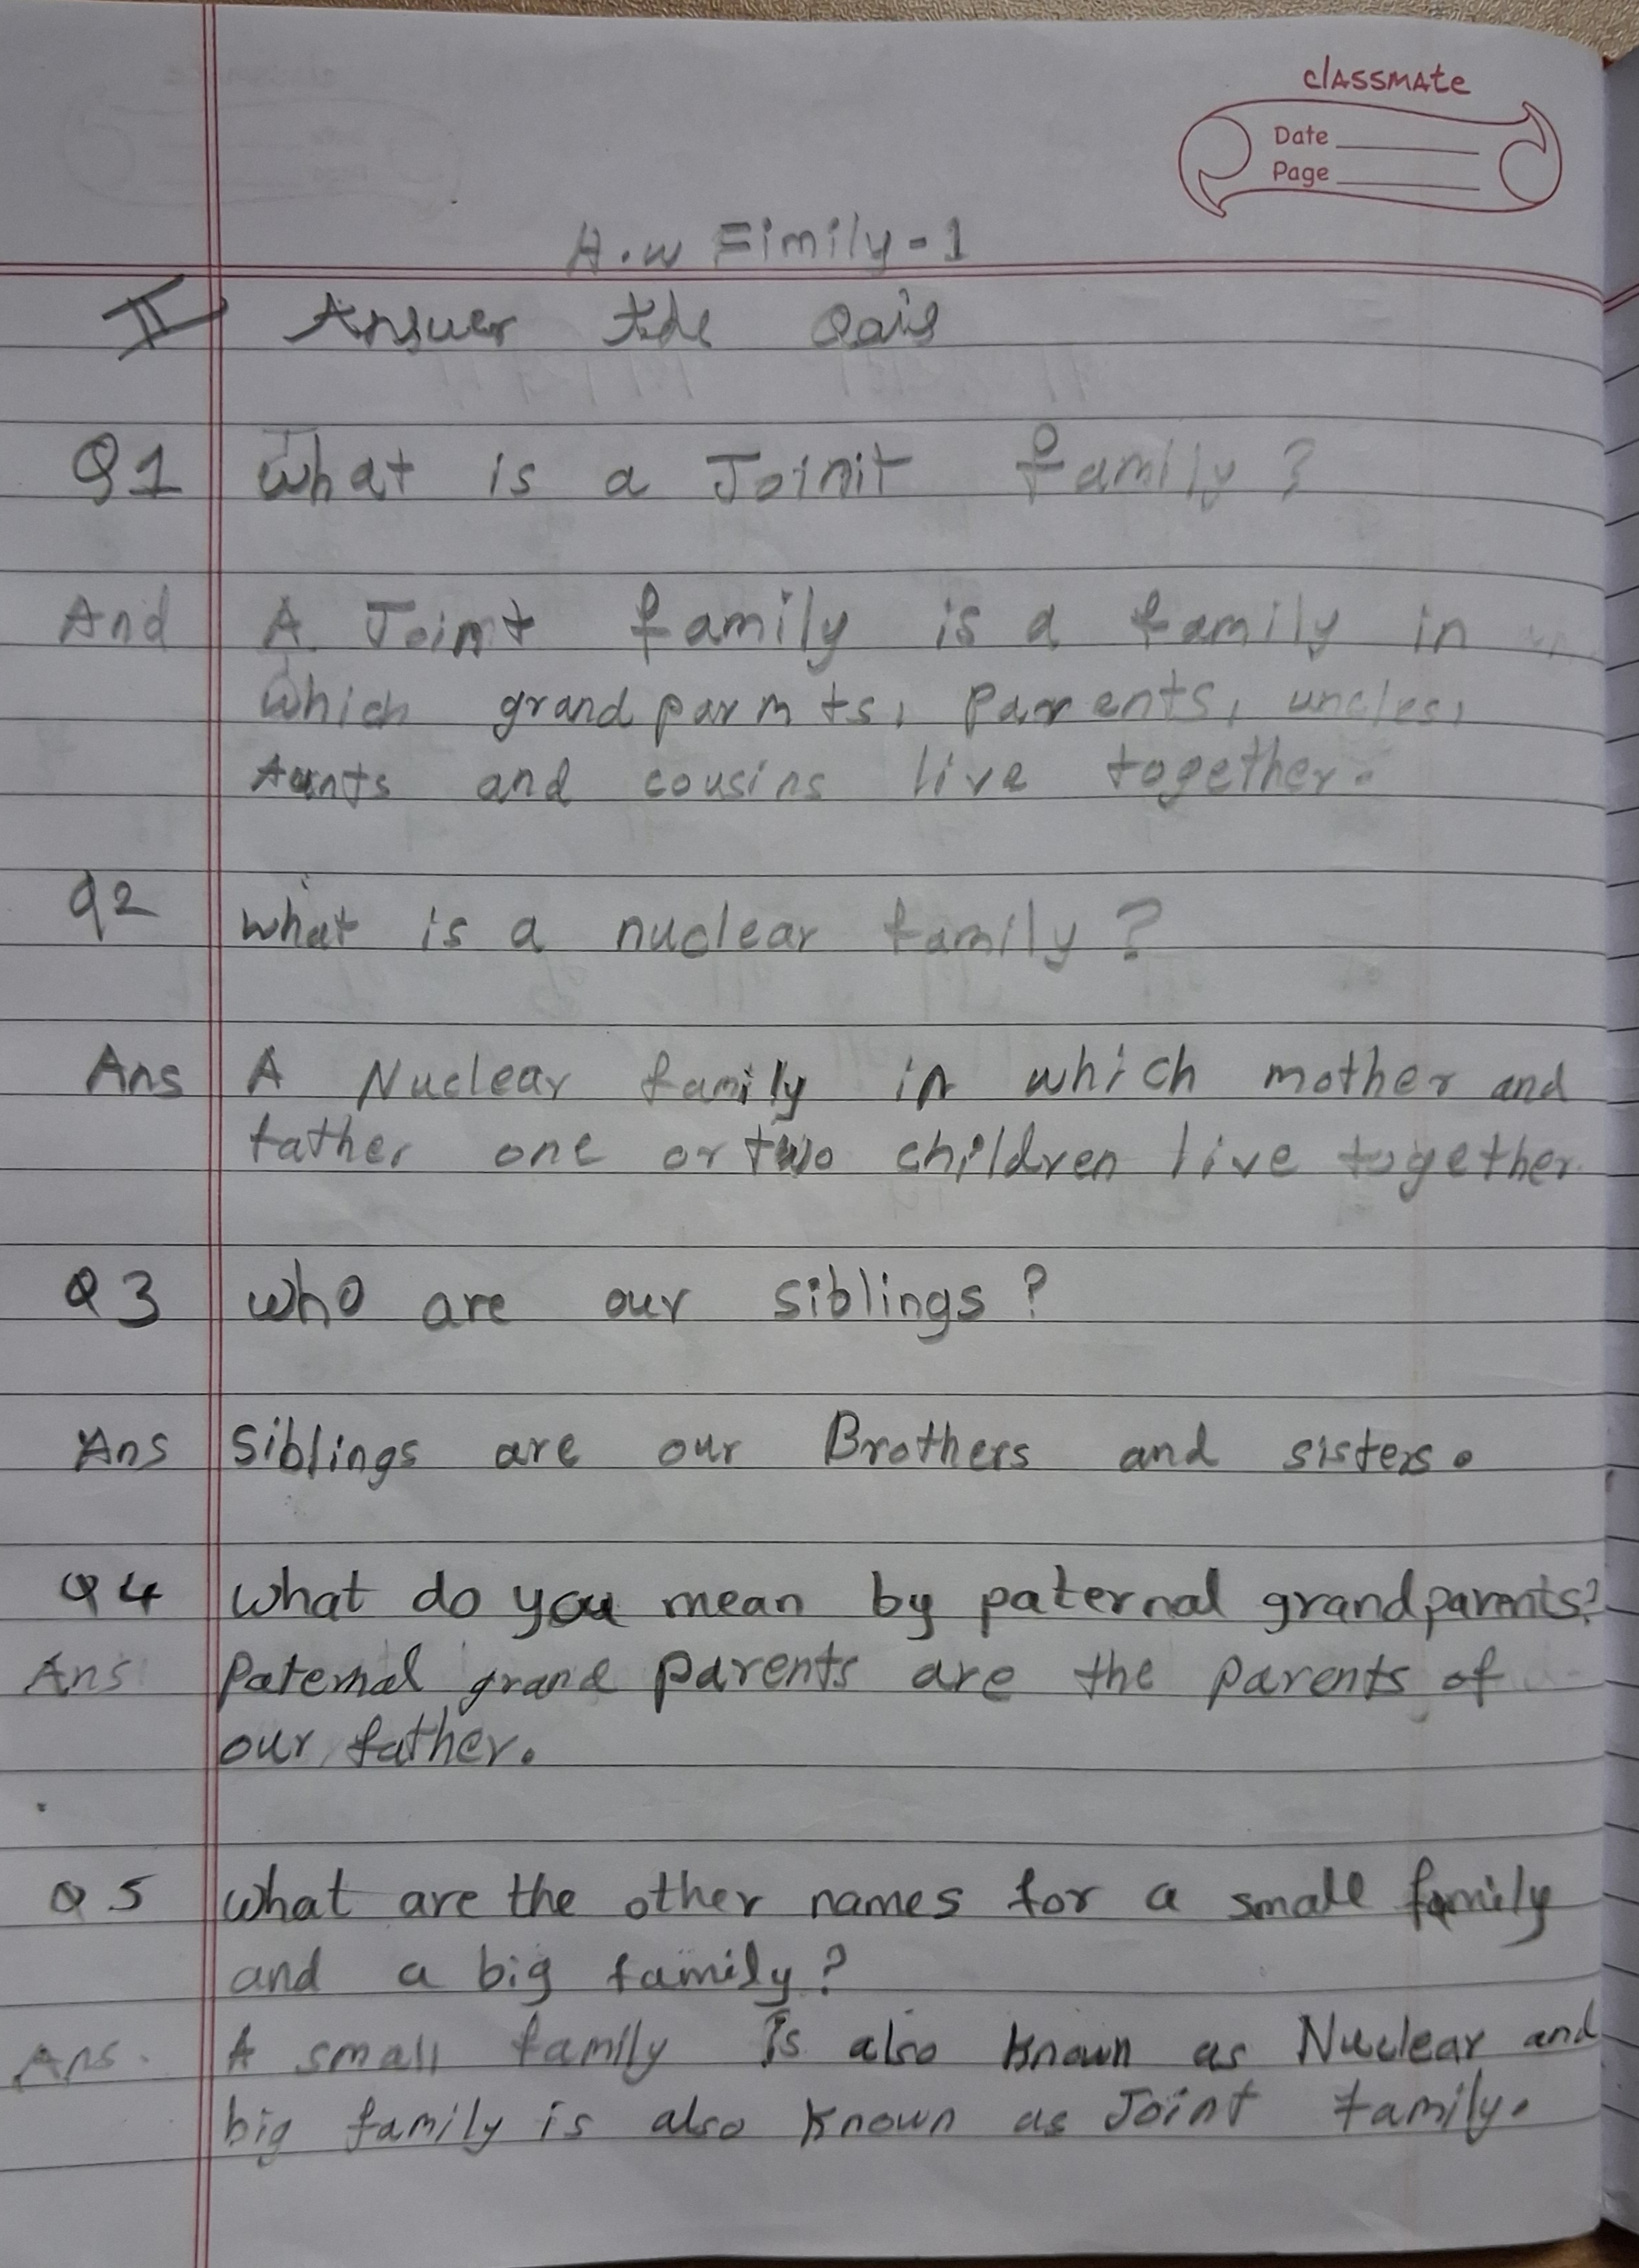 classmate
Date
Page
H.w Fimily-1
II Answer the
Q1 What is a Joinit family?
And A Joint family is a family in
which grandparmts, parents, uncles,
Aunts and cousins live together.
Q2 what is a nuclear family?
Ans A Nuclear family in which mother and
father one or two children live together
Q3 who are our siblings?
Ans Siblings are our Brothers and sisters.
Q4 What do you mean by paternal grandparents?
Ans Paternal grand parents are the parents of
our father.
Q5 What are the other names for a small family
and a big family?
Ans. A small family is also known as Nuclear and
big family is also known as Joint family.